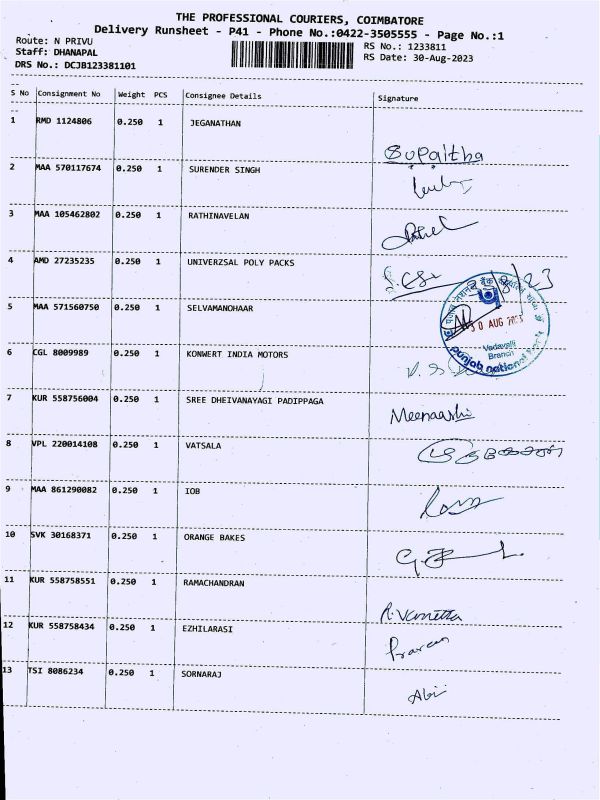 THE PROFESSIONAL COURIERS, COIMBATORE
Delivery Runsheet - P41 - Phone No.:0422-3505555 - Page No.:1
Route: N PRIVU
RS No.: 1233811
Staff: DHANAPAL
RS Date: 30-Aug-2023
DRS No.: DCJB123381101
S No Consignment No Weight PCS Consignee Details Signature
1 RMD 1124806 0.250 1 JEGANATHAN
Supaitha
2 MAA 570117674 0.250 1 SURENDER SINGH
3 MAA 105462802 0.250 1 RATHINAVELAN
4 AMD 27235235 0.250 1 UNIVERZSAL POLY PACKS
5 MAA 571560750 0.250 1 SELVAMANOHAAR
30 AUG 2023
Vadavalli
Branch
punjab national bank
6 CGL 8009989 0.250 1 KONWERT INDIA MOTORS
7 KUR 558756004 0.250 1 SREE DHEIVANAYAGI PADIPPAGA
Meenaashi
8 VPL 220014108 0.250 1 VATSALA
9 MAA 861290082 0.250 1 IOB
10 SVK 30168371 0.250 1 ORANGE BAKES
11 KUR 558758551 0.250 1 RAMACHANDRAN
12 KUR 558758434 0.250 1 EZHILARASI
13 TSI 8086234 0.250 1 SORNARAJ
Abi